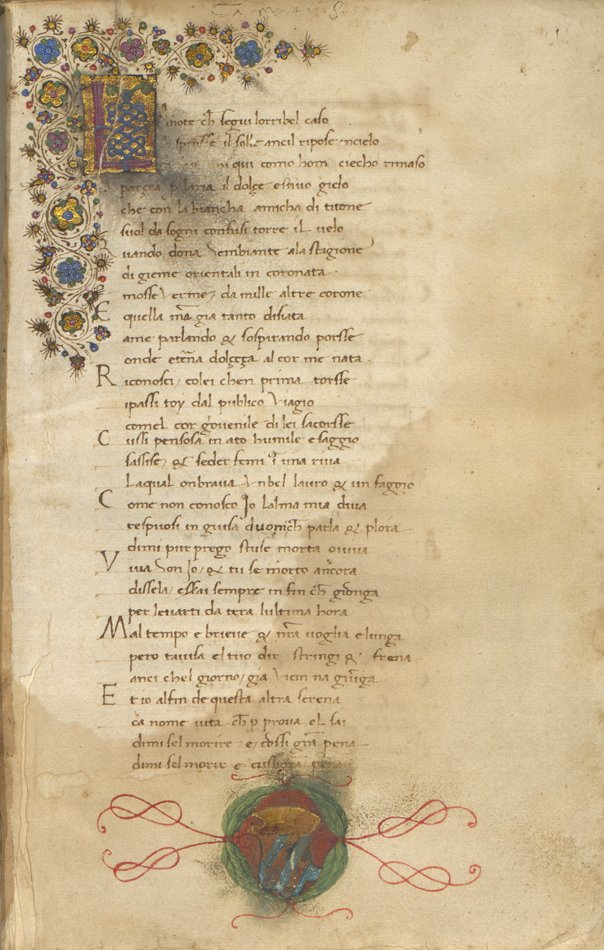 note ch segui lorribel caso
spensse il sole ancil ripose encielo
qui como hom ciecho rimaso
parcea p laria il dolçe estiuo gielo
che con la biancha amicha di titone
suol da sogni confusi torre il velo
uando dona sembiante ala stagione
di gieme orientali in coronata
mosse verme da mille altre corone
E quella ma gia tanto disiata
ame parlando & sospirando porsse
onde eterna dolçeça al cor me nata
R iconosci colei chen prima torsse
i passi toy dal publico viagio
comel cor giovenile di lei sacorsse
C ussi pensosa in ato humile e saggio
sassise & seder femi in una riva
Laqual onbrava vnbel lauro & un faggio
C ome non conosco Io lalma mia diva
respuosi in guisa duomch parla & plora
dimi pur prego stuse morta oviva
V iva son Jo & tu se morto ancora
dissela essai sempre in fin ch gionga
per levarti da tera lultima hora
M al tempo e brieve & nra voglia e lunga
pero tavisa el tuo dir stringi & frena
anci chel giorno gia vicin na giunga
E t io alfin de questa altra serena
ca nome vita ch p prova el sai
dimi sel morire e cossi gra pena
dimi sel morir e cussi gra pena